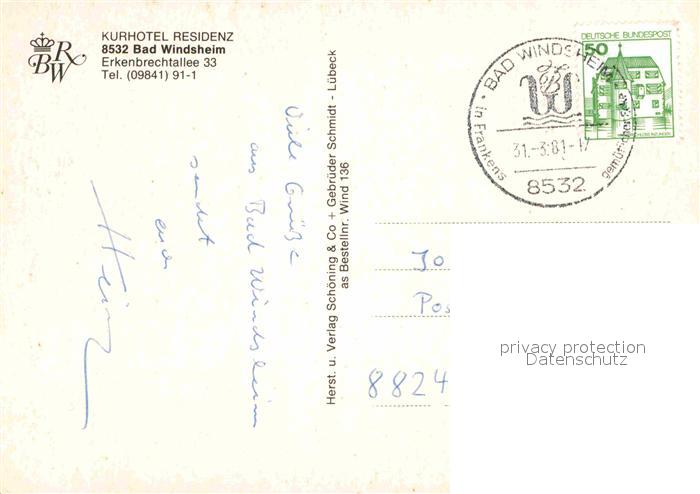 BRW
KURHOTEL RESIDENZ
8532 Bad Windsheim
Erkenbrechtallee 33
Tel. (09841) 91-1
Viele Grüße
aus Bad Windsheim
sendet
euch
Heinz
Herst. u. Verlag Schöning & Co + Gebrüder Schmidt - Lübeck
as Bestellnr. Wind 136
DEUTSCHE BUNDESPOST
50
BAD WINDSHEIM
in Frankens
31.-3.81-17
8532
Jo
Pos
8824
privacy protection
Datenschutz